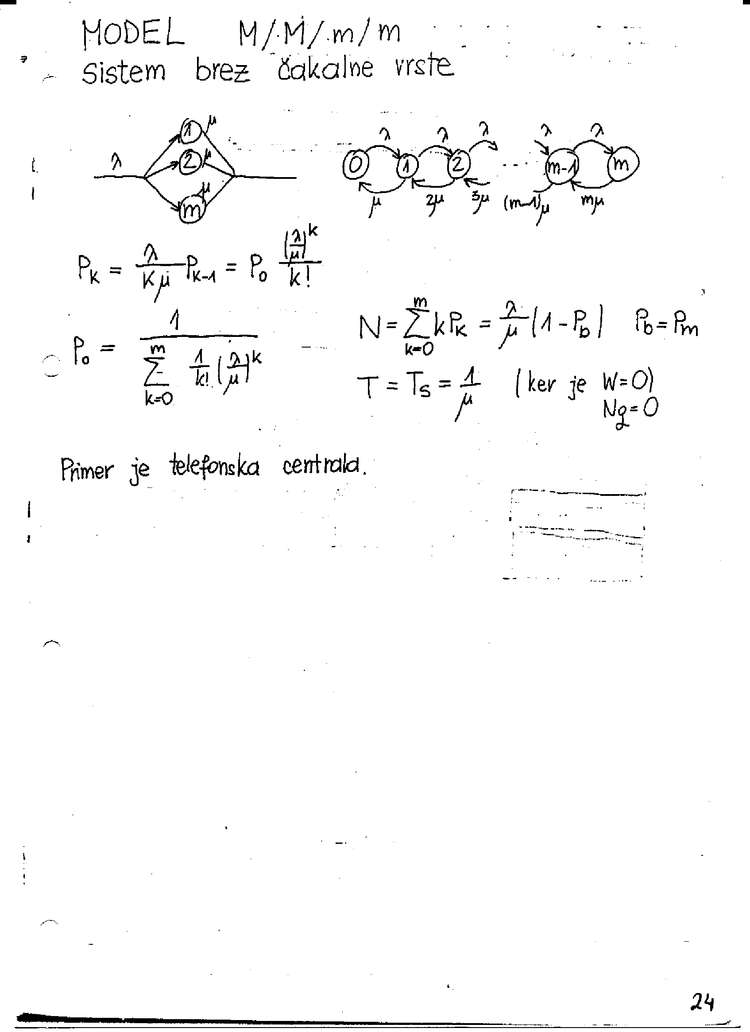 MODEL M/M/m/m
sistem brez čakalne vrste
λ 1 μ 2 μ m μ
0 λ 1 λ 2 λ ... λ m-1 λ m
μ 2μ 3μ (m-1)μ mμ
P_k = λ/(kμ) P_{k-1} = P_0 (λ/μ)^k / k!
P_0 = 1 / (∑_{k=0}^{m} 1/k! (λ/μ)^k)
N = ∑_{k=0}^{m} k P_k = λ/μ (1-P_b) P_b = P_m
T = T_s = 1/μ (ker je W=0)
Nq=0
Primer je telefonska centrala.
24